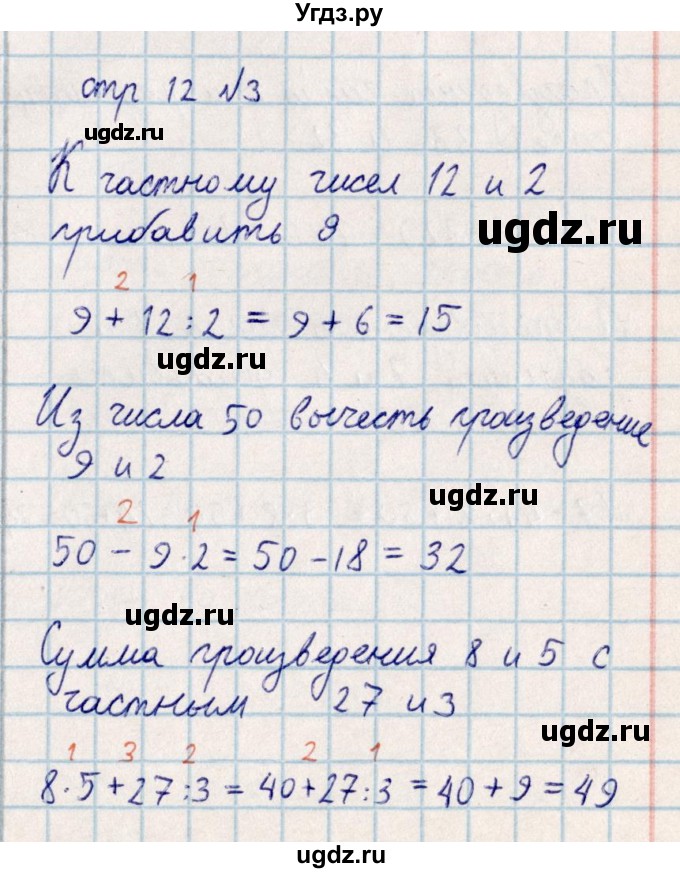 Угдз.ру
стр 12 №3
ugdz.ru
К частному чисел 12 и 2
прибавить 9
ugdz.ru
2 1
9 + 12 : 2 = 9 + 6 = 15
ugdz.ru
Из числа 50 вычесть произведение
9 и 2
ugdz.ru
2 1
50 - 9 · 2 = 50 - 18 = 32
ugdz.ru
Сумма произведения 8 и 5 с
частным 27 и 3
ugdz.ru
1 3 2 2 1
8 · 5 + 27 : 3 = 40 + 27 : 3 = 40 + 9 = 49
ugdz.ru